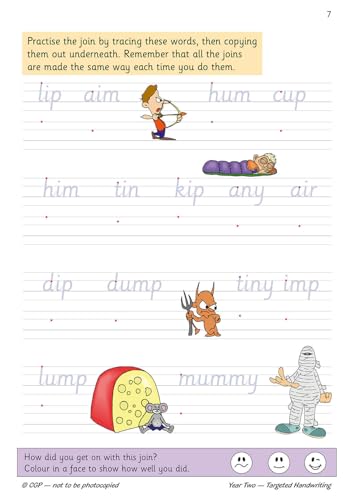 7
Practise the join by tracing these words, then copying
them out underneath. Remember that all the joins
are made the same way each time you do them.
lip aim hum cup
him tin kip any air
dip dump tiny imp
lump mummy
How did you get on with this join?
Colour in a face to show how well you did.
© CGP — not to be photocopied Year Two — Targeted Handwriting